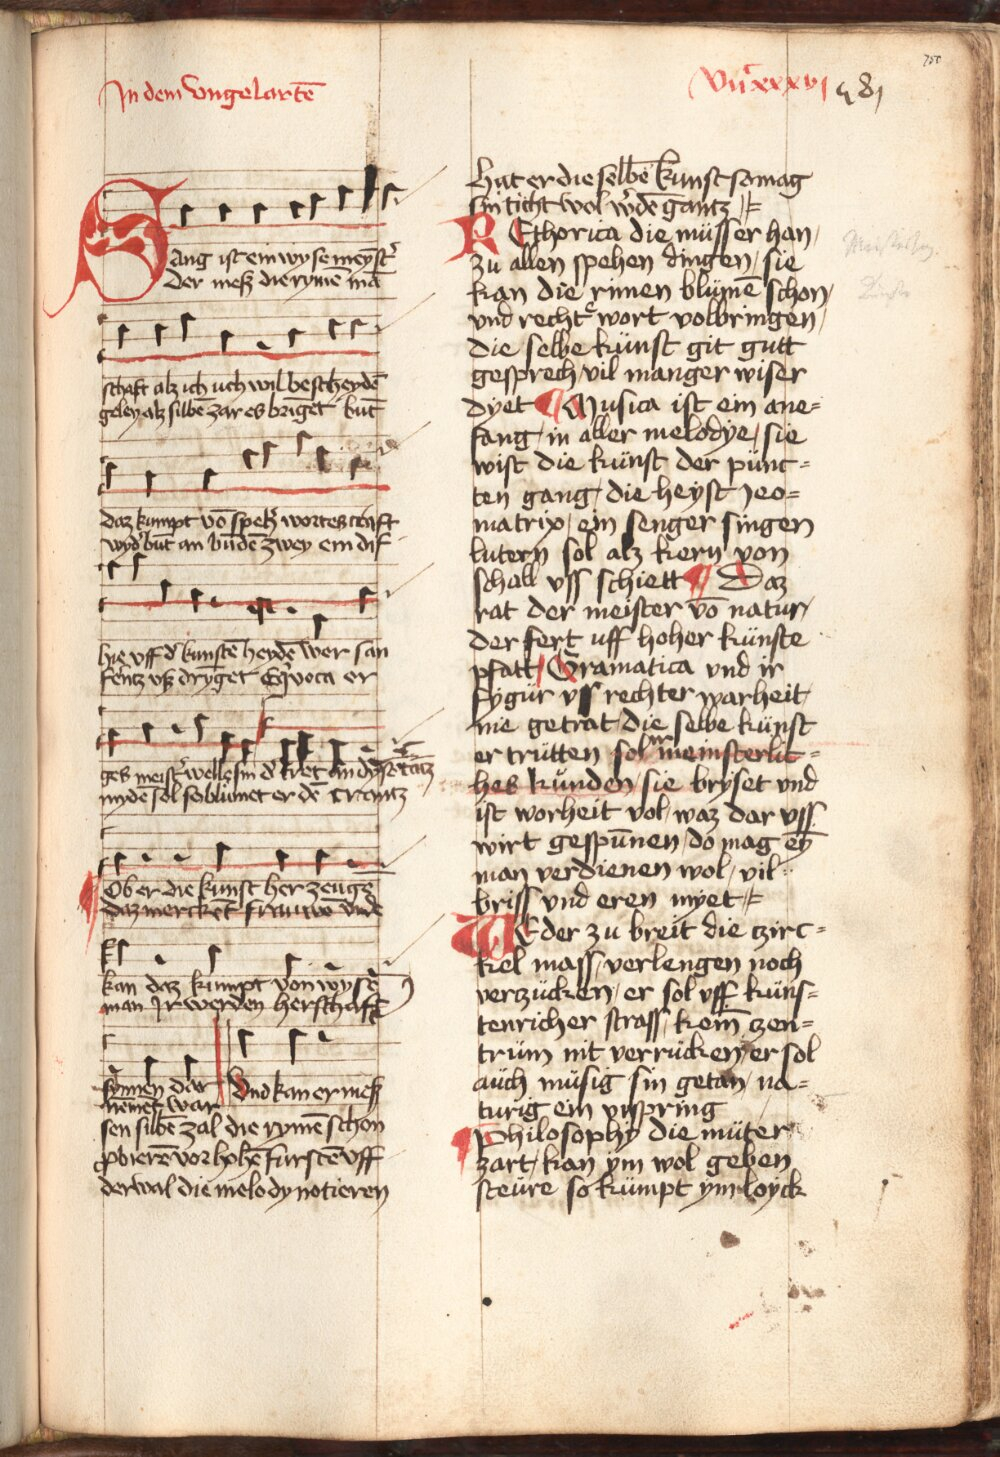 In dem Ungelartē
Vııᶜxxxvı 481
Sang ist ein wyse meystʼ
der meß die rymē mā
schaft alz ich uch wil bescheydē
geley alz silbē zar es bringet kut
daz kumpt vō spehʼ wortes craft
wydʼ but an bunden zwey ein dif
hie vff dʼ kunstē heydē wer san
fentz vß drynget Eqʼvoca er
ges meistʼ welle sin dʼ tret an dysē tātz
myde sol se blumet er dē crantz
Ob er die kunst her zeuge
daz mercket frauwē vnde
kan daz kumpt von wysē
man Ir werden herschafft
synnen dar Und kan er meß
nēmet war
sen silbē zal die rymē schon
pbierē vor hohē furstē vff
der wal die melody notieren
hat er die selbē kunst so mag
sin ticht wol wʼdē gantz
REthorica die müss er han
zu allen spehen dingen sie
kan die rimen blümē schon
vnd rechtʼ wort volbringen
die selbe künst git gutt
gesprech vil manger wiser
dyet Musica ist ein ane=
fang in aller melodye sie
wist die künst der punc=
ten gang die heyst Jeo=
matrix ein senger singen
lutern sol alz kern von
schall vss schiett Daz
rat der meister vō natur
der fert uff hoher künste
pfatt Gramatica vnd ir
fygür vss rechter warheit
nie getrat die selbe künst
er trütten sol wir meinsterlic=
hes künden sie bryset vnd
ist worheit vol waz dar vss
wirt gespūnen do mag ey̅
man verdienen wol vil
briss vnd eren myet
WEder zu breit die czirc=
kel mass verlengen noch
verzücken er sol vff küns=
tenricher strass keim̅ zen=
trüm nit verrücken er sol
auch müsig sin getan na=
turig ein vrspring
Philosophy die müter
zart kan ym wol geben
steüre so kümpt ym loyck